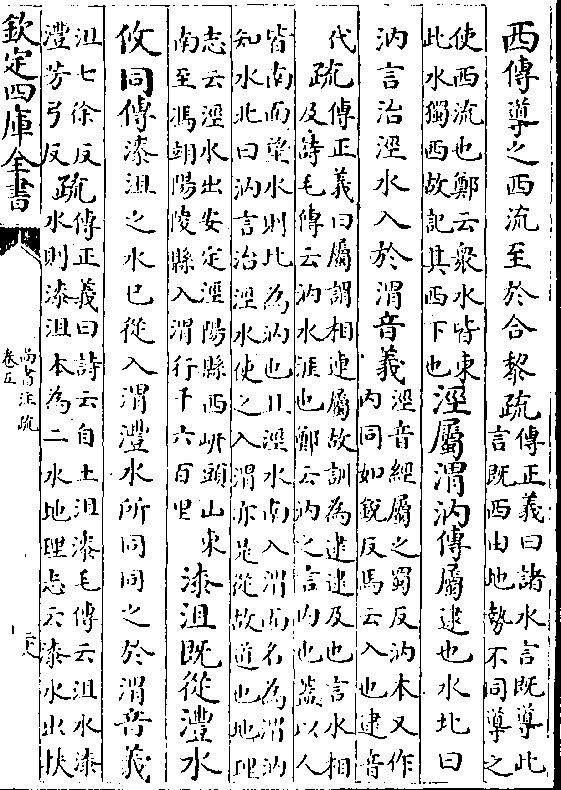 西傳導之西流至於合黎疏傳正義曰諸水言既導此
言既西由地勢不同導之
使西流也鄭云衆水皆東
此水獨西故記其西下也涇屬渭汭傳屬逮也水北曰
汭言治涇水入於渭音義涇音經屬之蜀反汭本又作
内同如銳反馬云入也逮音
代疏傳正義曰屬謂相連屬故訓為逮逮及也言水相
及詩毛傳云汭水涯也鄭云汭之言内也蓋以人
皆南面望水則北為汭也且涇水南入渭而名為渭汭
知水北曰汭言治涇水使之入渭亦是從故道也地理
志云涇水出安定涇陽縣西岍頭山東
南至馮翊陽陵縣入渭行千六百里漆沮既從灃水
攸同傳漆沮之水已從入渭灃水所同同之於渭音義
沮七徐反
灃芳弓反疏傳正義曰詩云自土沮漆毛傳云沮水漆
水則漆沮本為二水地理志云漆水出扶
欽定四庫全書
尚書注疏
卷五